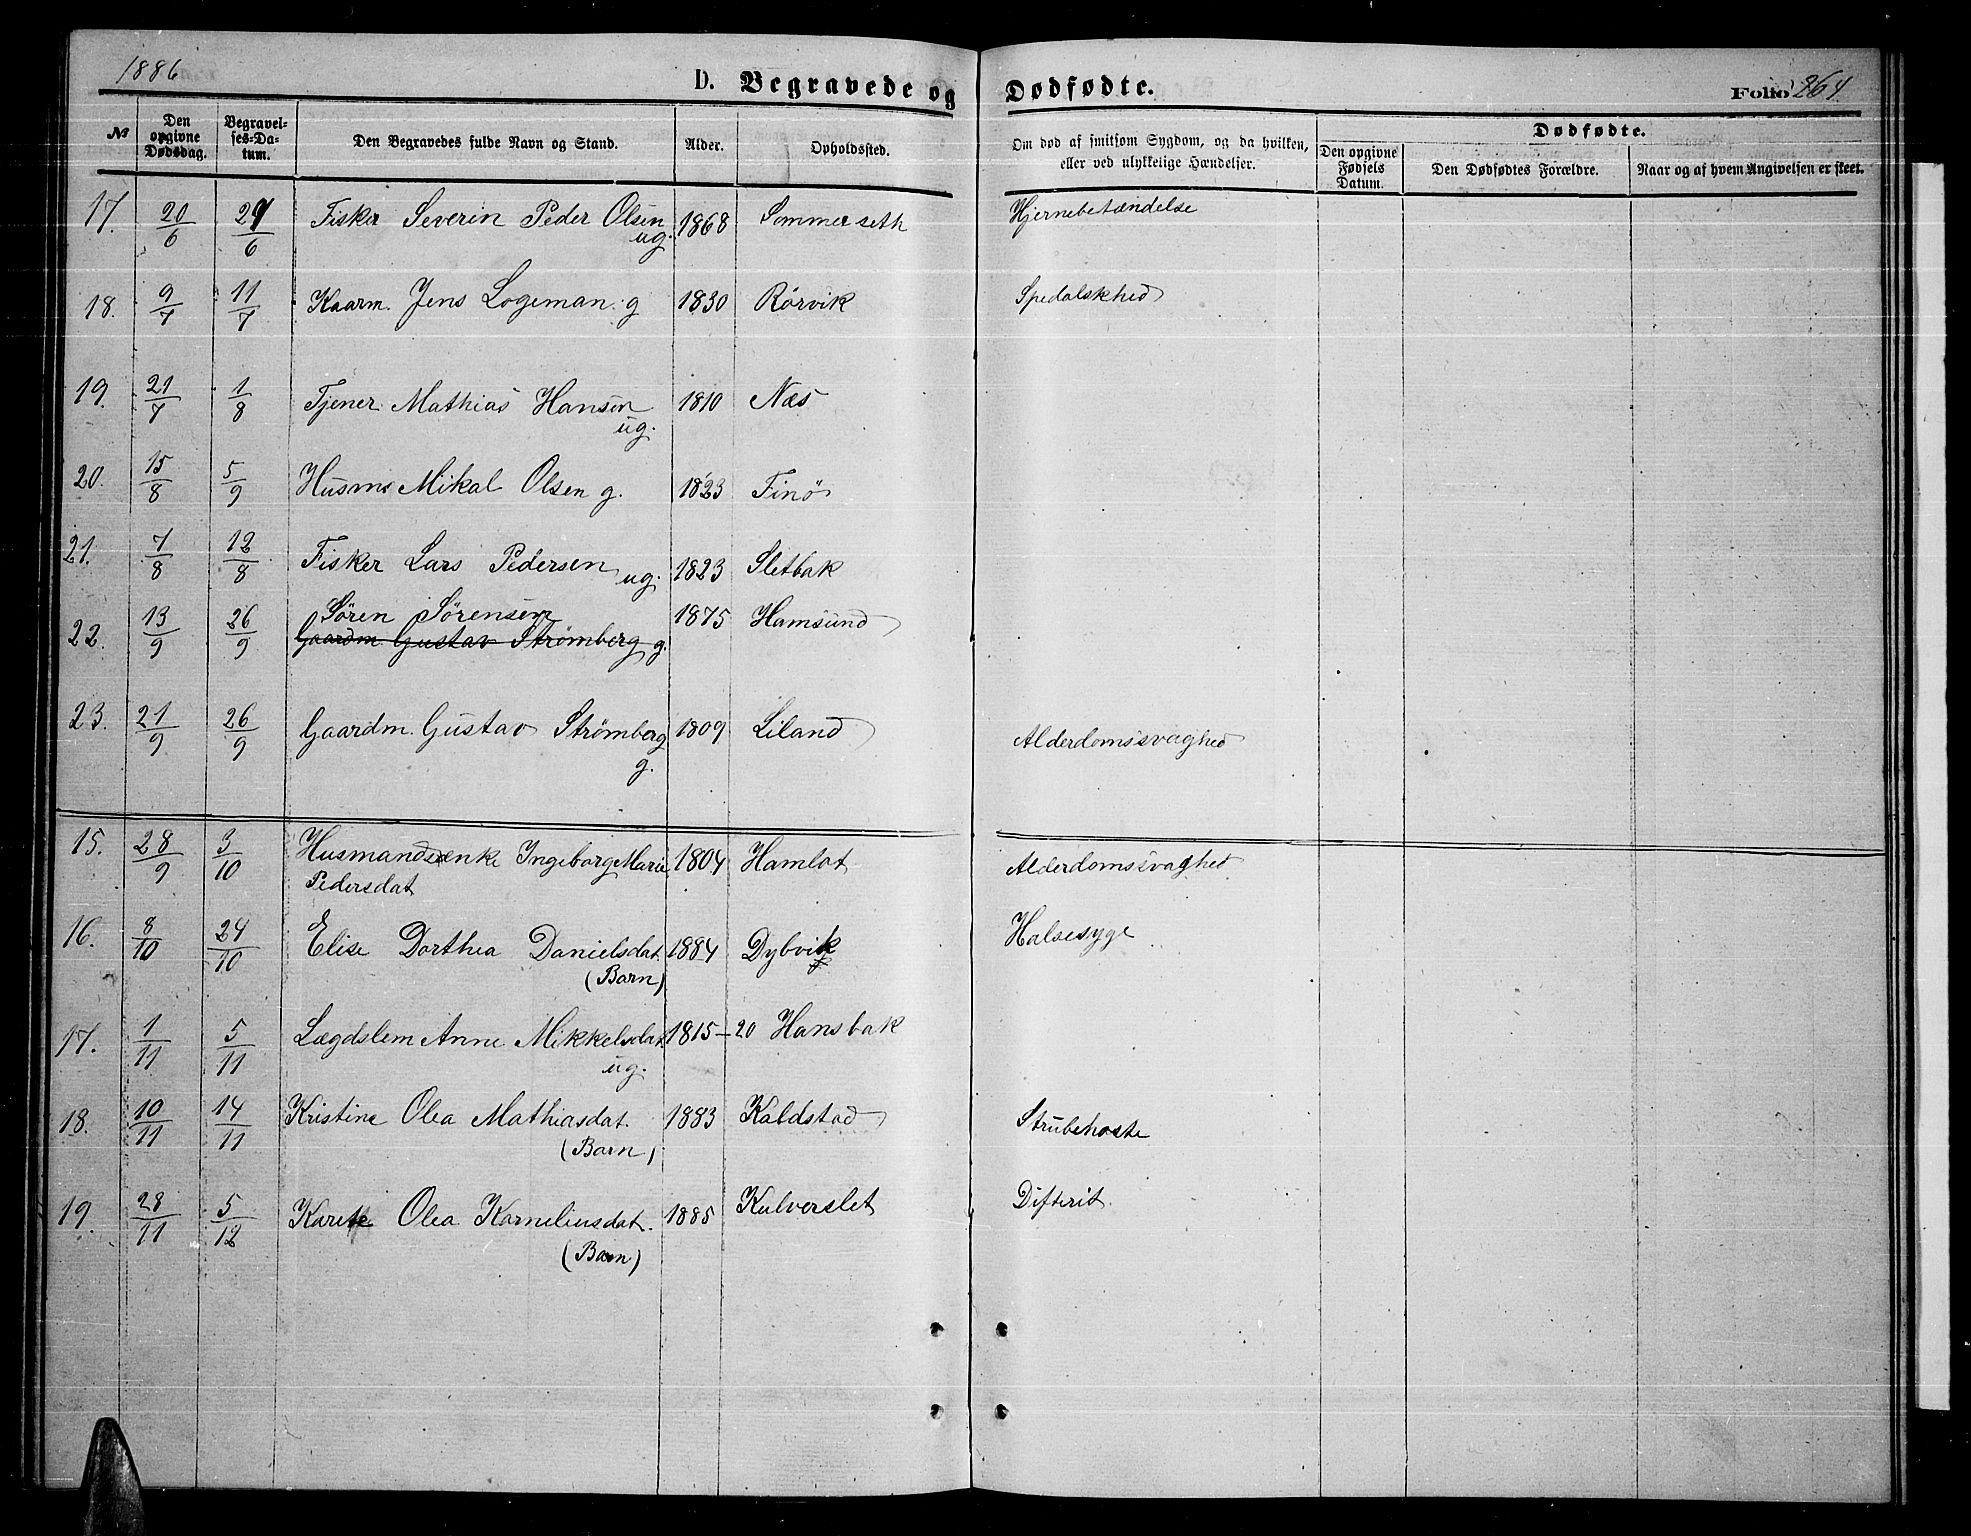 1886
D. Begravede og Dødfødte.
Folio 264
№ Den opgivne Dødsdag. Begravelses-Datum. Den Begravedes fulde Navn og Stand. Alder. Opholdssted. Om død af smitsom Sygdom, og da hvilken, eller ved ulykkelige Hændelser. Dødfødte. Den opgivne Fødsels Datum. Den Dødfødtes Forældre. Naar og af hvem Angivelsen er skeet.
17. 20/6 29/6 Fisker Severin Peder Olsen 1868 Sommerseth Hjernebetændelse
ug.
18. 9/7 11/7 Kaarm. Jens Logeman g 1830 Rörvik Spedalskhed
19. 21/7 1/8 Tjener Mathias Hansen 1810 Næs
ug.
20. 15/8 5/9 Husm Mikal Olsen g. 1823 Finö
21. 7/8 12/8 Fisker Lars Pedersen ug. 1823 Sletbak
22. 13/9 26/9 Søren Sørensen 1875 Hamsund
Gaardm. Gustav Strømberg g.
23. 21/9 26/9 Gaardm. Gustav Strømberg 1809 Liland Alderdomssvaghed
g.
15. 28/9 3/10 Husmandsenke Ingeborg Marie 1804 Hamlot Alderdomssvaghed
Pedersdat
16. 8/10 24/10 Elise Dorthea Danielsdat. 1884 Dybvik Halsesyge
(Barn)
17. 1/11 5/11 Lægdslem Anne Mikkelsdat. 1815-20 Hansbak
ug.
18. 10/11 14/11 Kristine Olea Mathiasdat. 1883 Kaldstad Strubehoste
(Barn)
19. 28/11 5/12 Olea Korneliusdat. 1885 Kulverslet Difterit.
(Barn)